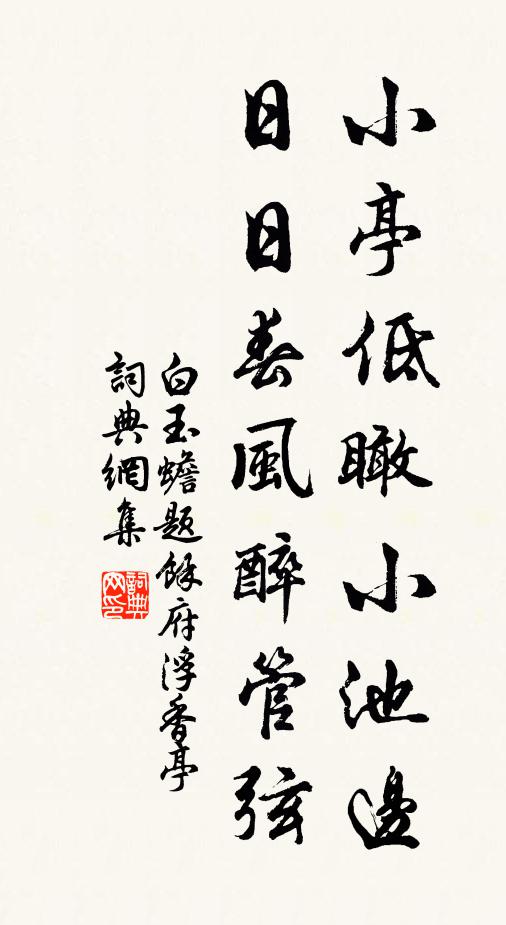 小亭低瞰小池邊
日日春風醉管弦
白玉蟾題餘府浮香亭
詞典網集
詞典網印